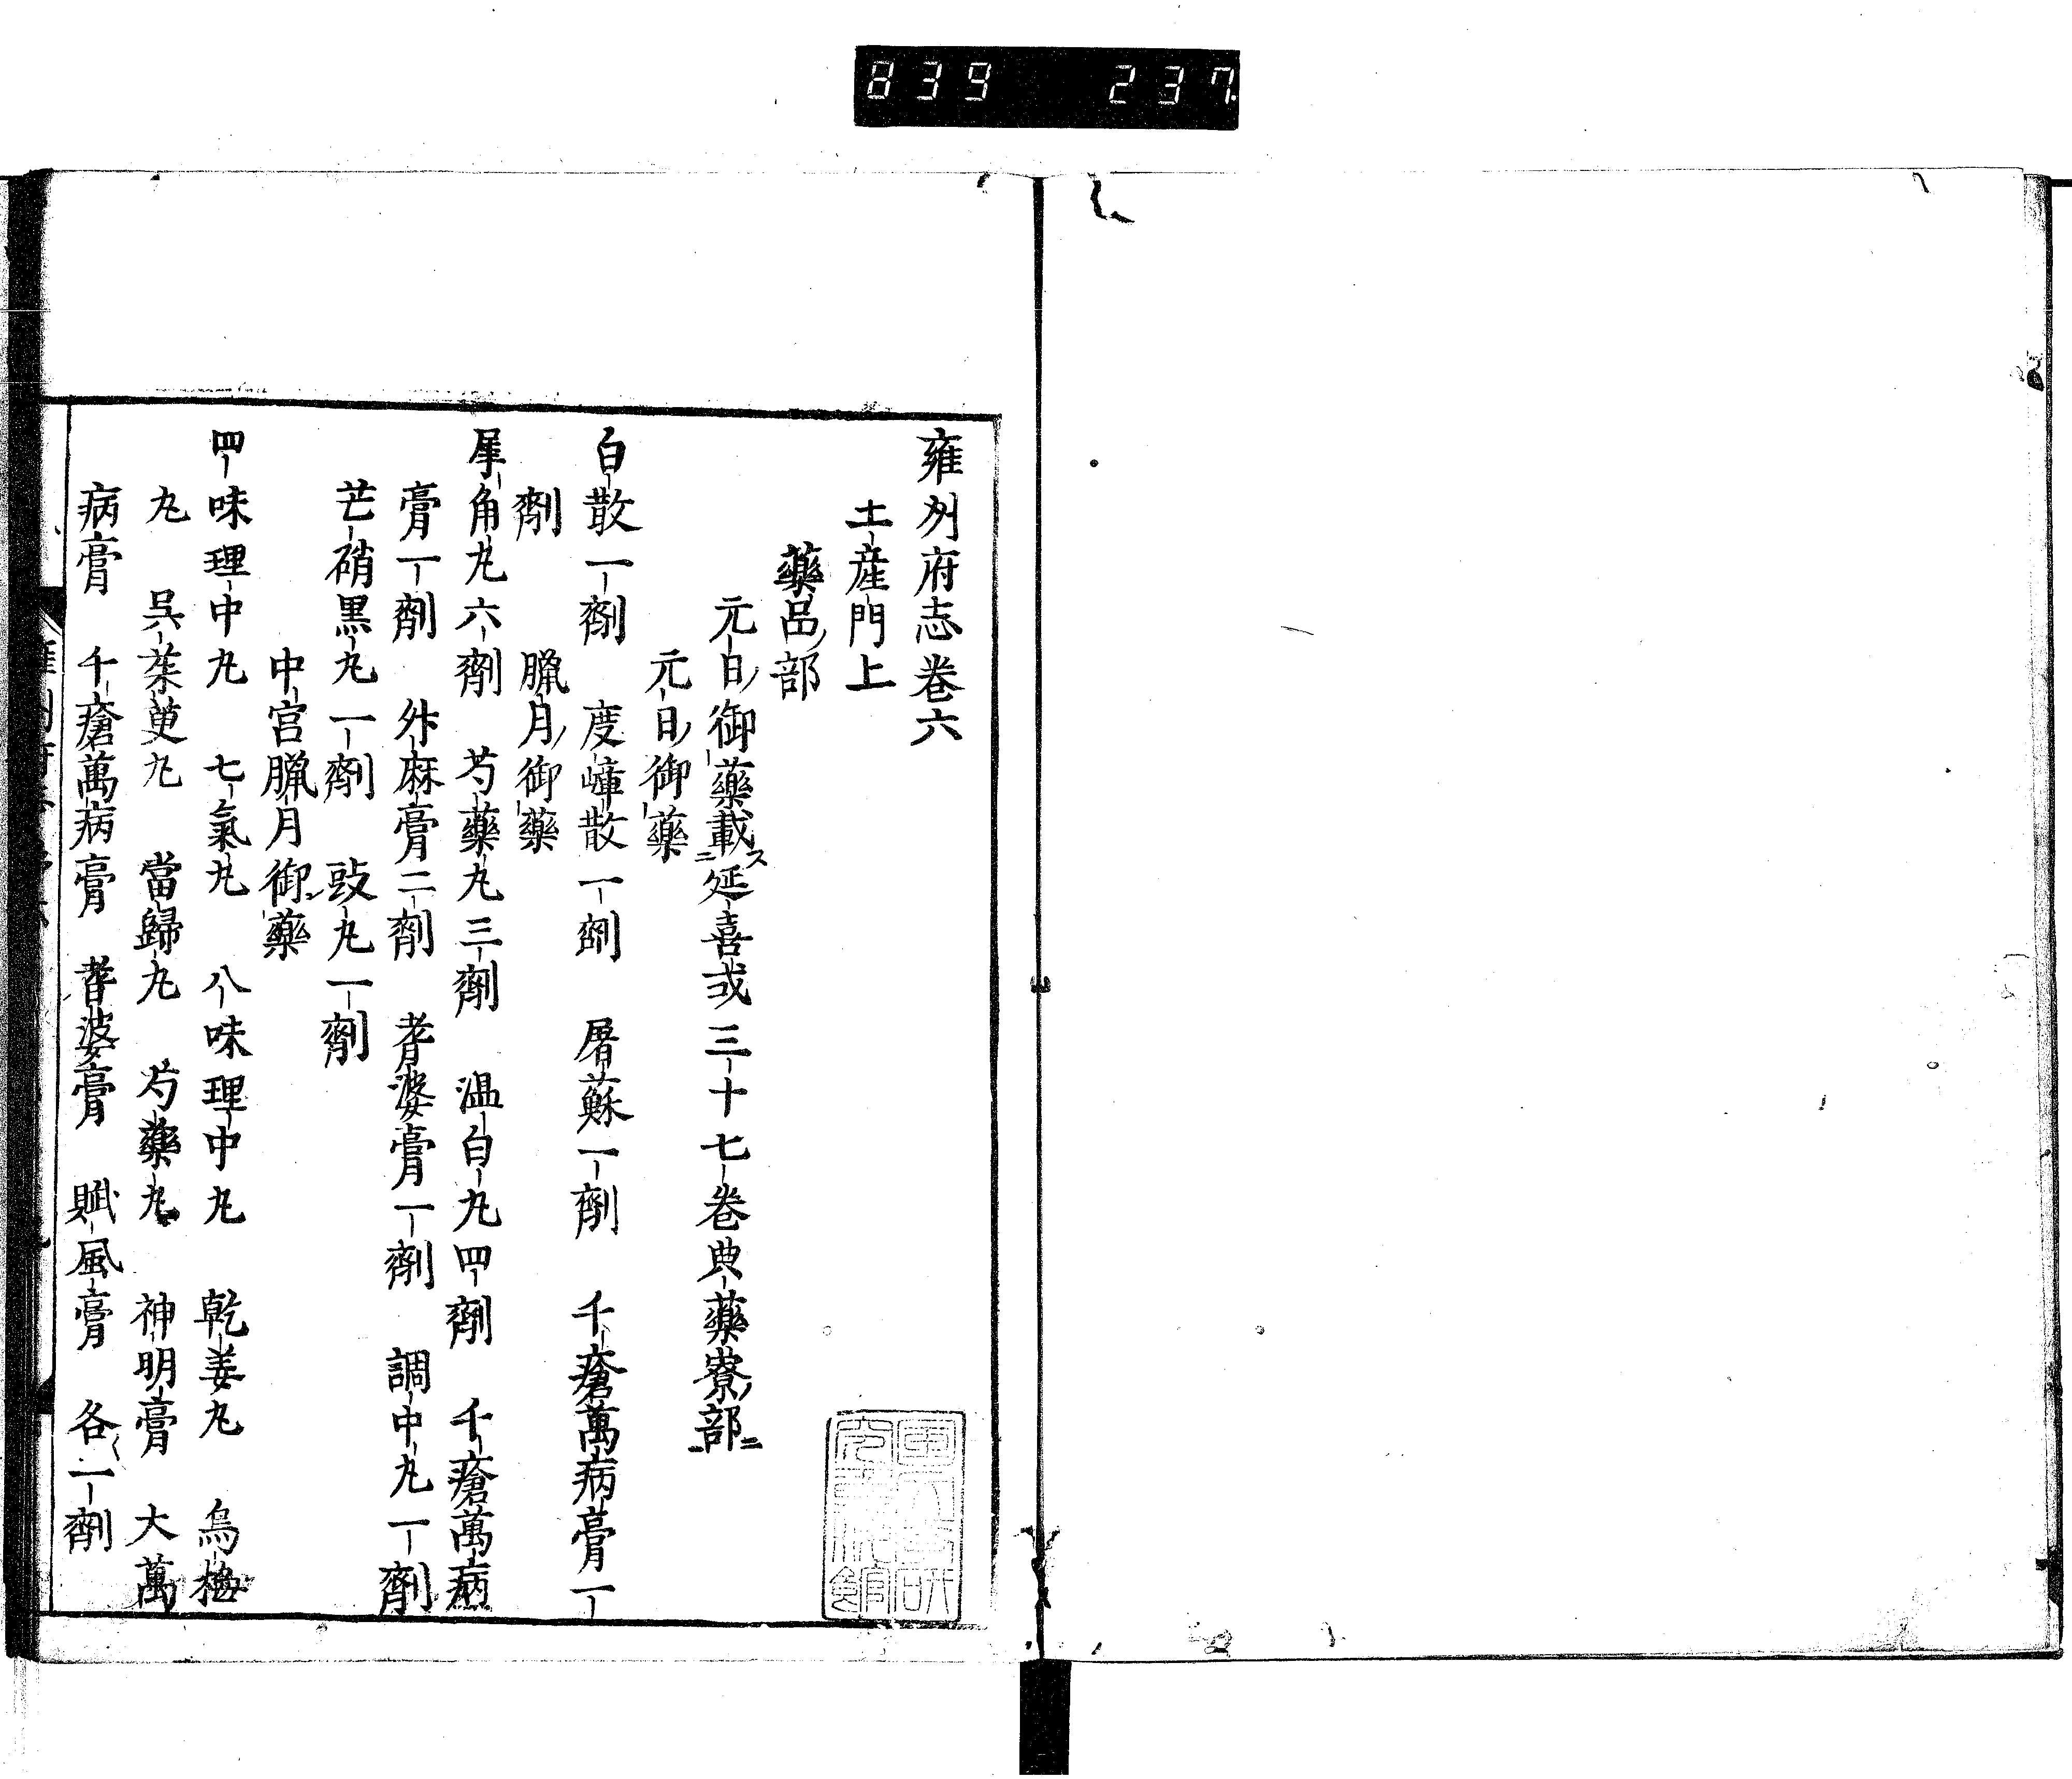 839 237
雍州府志巻六
土産門上
藥品ノ部
元日ノ御藥載ス延喜式三十七巻典藥寮ノ部ニ
元日ノ御藥
白散一劑 度嶂散一劑 屠蘇一劑 千瘡萬病膏一
劑 臘月ノ御藥
犀角丸六劑 芍藥丸三劑 温白丸四劑 千瘡萬病
膏一劑 升麻膏二劑 耆婆膏一劑 調中丸一劑
芒硝黒丸一劑 豉丸一劑
中宮臘月御藥
四味理中丸 七氣丸 八味理中丸 乾姜丸 烏梅
丸 呉茱萸丸 當歸丸 芍藥丸 神明膏 大萬
病膏 千瘡萬病膏 耆婆膏 賊風膏 各一劑